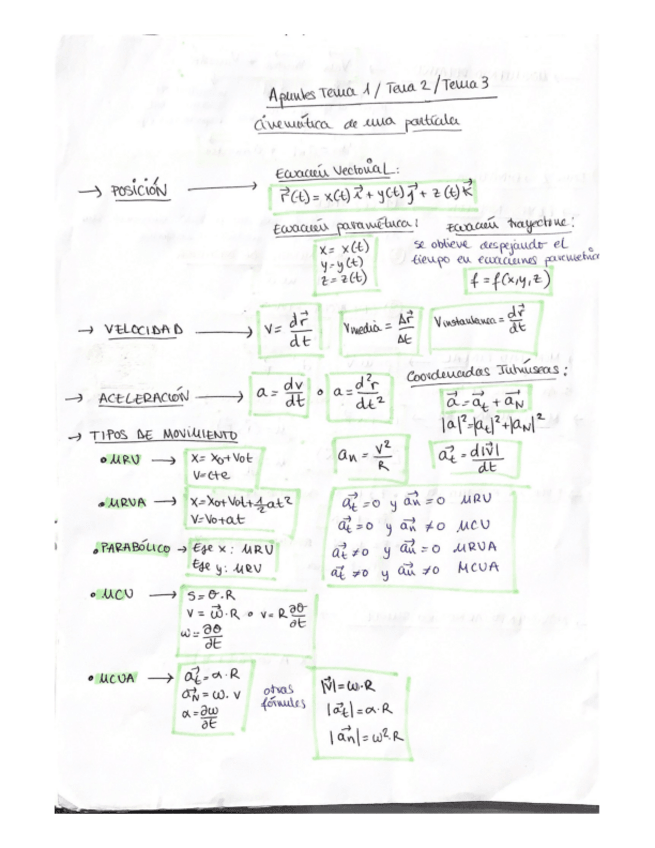 Apuntes Tema 1 / Tema 2 / Tema 3
Cinemática de una partícula
→ POSICIÓN →
Ecuación Vectorial:
r⃗(t) = x(t) i⃗ + y(t) j⃗ + z(t) k⃗
Ecuación paramétrica:
x = x(t)
y = y(t)
z = z(t)
Ecuación trayectoria:
se obtiene despejando el
tiempo en ecuaciones
f = f(x,y,z)
→ VELOCIDAD → v = dr⃗/dt Vmedia = Δr⃗/Δt Vinstantánea = dr⃗/dt
→ ACELERACIÓN → a = dv/dt o a = d²r/dt²
Coordenadas Intrínsecas:
a⃗ = a⃗t + a⃗N
|a|² = |at|² + |aN|²
an = v²/R a⃗t = d|v⃗|/dt
→ TIPOS DE MOVIMIENTO
• MRU → x = x0 + Vot
v = cte
• MRUA → x = x0 + Vot + 1/2 at²
v = Vo + at
• PARABÓLICO → Eje x: MRU
Eje y: MRU
a⃗t = 0 y a⃗n = 0 MRU
a⃗t = 0 y a⃗n ≠ 0 MCU
a⃗t ≠ 0 y a⃗n = 0 MRUA
a⃗t ≠ 0 y a⃗n ≠ 0 MCUA
• MCU → S = θ·R
v = ω⃗·R o v = R ∂θ/∂t
ω = ∂θ/∂t
• MCUA → a⃗t = α·R
a⃗N = ω·v
α = ∂ω/∂t
otras
fórmulas
|v⃗| = ω·R
|a⃗t| = α·R
|a⃗n| = ω²·R